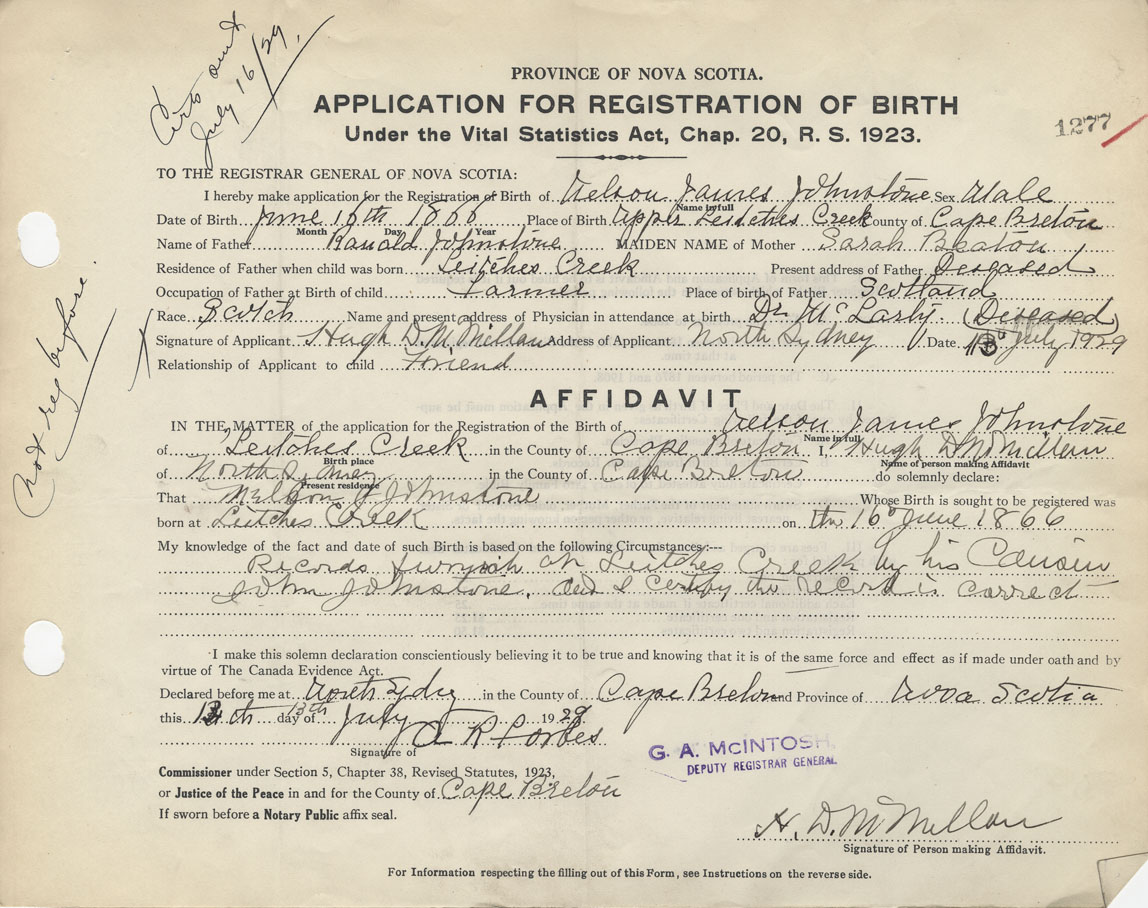 Certs sent
July 16/29.
PROVINCE OF NOVA SCOTIA.
APPLICATION FOR REGISTRATION OF BIRTH
Under the Vital Statistics Act, Chap. 20, R. S. 1923.
1277
TO THE REGISTRAR GENERAL OF NOVA SCOTIA:
I hereby make application for the Registration of Birth of Nelson James Johnstone Sex Male
Name in full
Date of Birth June 16th 1866 Place of Birth Upper Leitches Creek County of Cape Breton
Month Day Year
Name of Father Ranald Johnstone MAIDEN NAME of Mother Sarah Beaton
Residence of Father when child was born Leitches Creek Present address of Father Deseased
Occupation of Father at Birth of child Farmer Place of birth of Father Scotland
Race Scotch Name and present address of Physician in attendance at birth Dr McLarty. (Deseased)
Signature of Applicant Hugh D. McMillan Address of Applicant North Sydney Date 13th July 1929
Relationship of Applicant to child Friend
Not reg before.
AFFIDAVIT
IN THE MATTER of the application for the Registration of the Birth of Nelson James Johnstone
Name in full
of Leitches Creek in the County of Cape Breton I, Hugh D McMillan
Birth place Name of person making Affidavit
of North Sydney in the County of Cape Breton do solemnly declare:
Present residence
That Nelson J Johnstone Whose Birth is sought to be registered was
born at Leitches Creek on the 16 June 1866
My knowledge of the fact and date of such Birth is based on the following Circumstances:---
Records at Leitches Creek by his Cousin
John Johnstone, and I certify the record is correct
I make this solemn declaration conscientiously believing it to be true and knowing that it is of the same force and effect as if made under oath and by
virtue of The Canada Evidence Act.
Declared before me at North Sydney in the County of Cape Breton and Province of Nova Scotia
this 13th day of July 1929
A R Forbes
Signature of
G. A. McINTOSH,
DEPUTY REGISTRAR GENERAL
Commissioner under Section 5, Chapter 38, Revised Statutes, 1923,
or Justice of the Peace in and for the County of Cape Breton
If sworn before a Notary Public affix seal.
H. D. McMillan
Signature of Person making Affidavit.
For Information respecting the filling out of this Form, see Instructions on the reverse side.